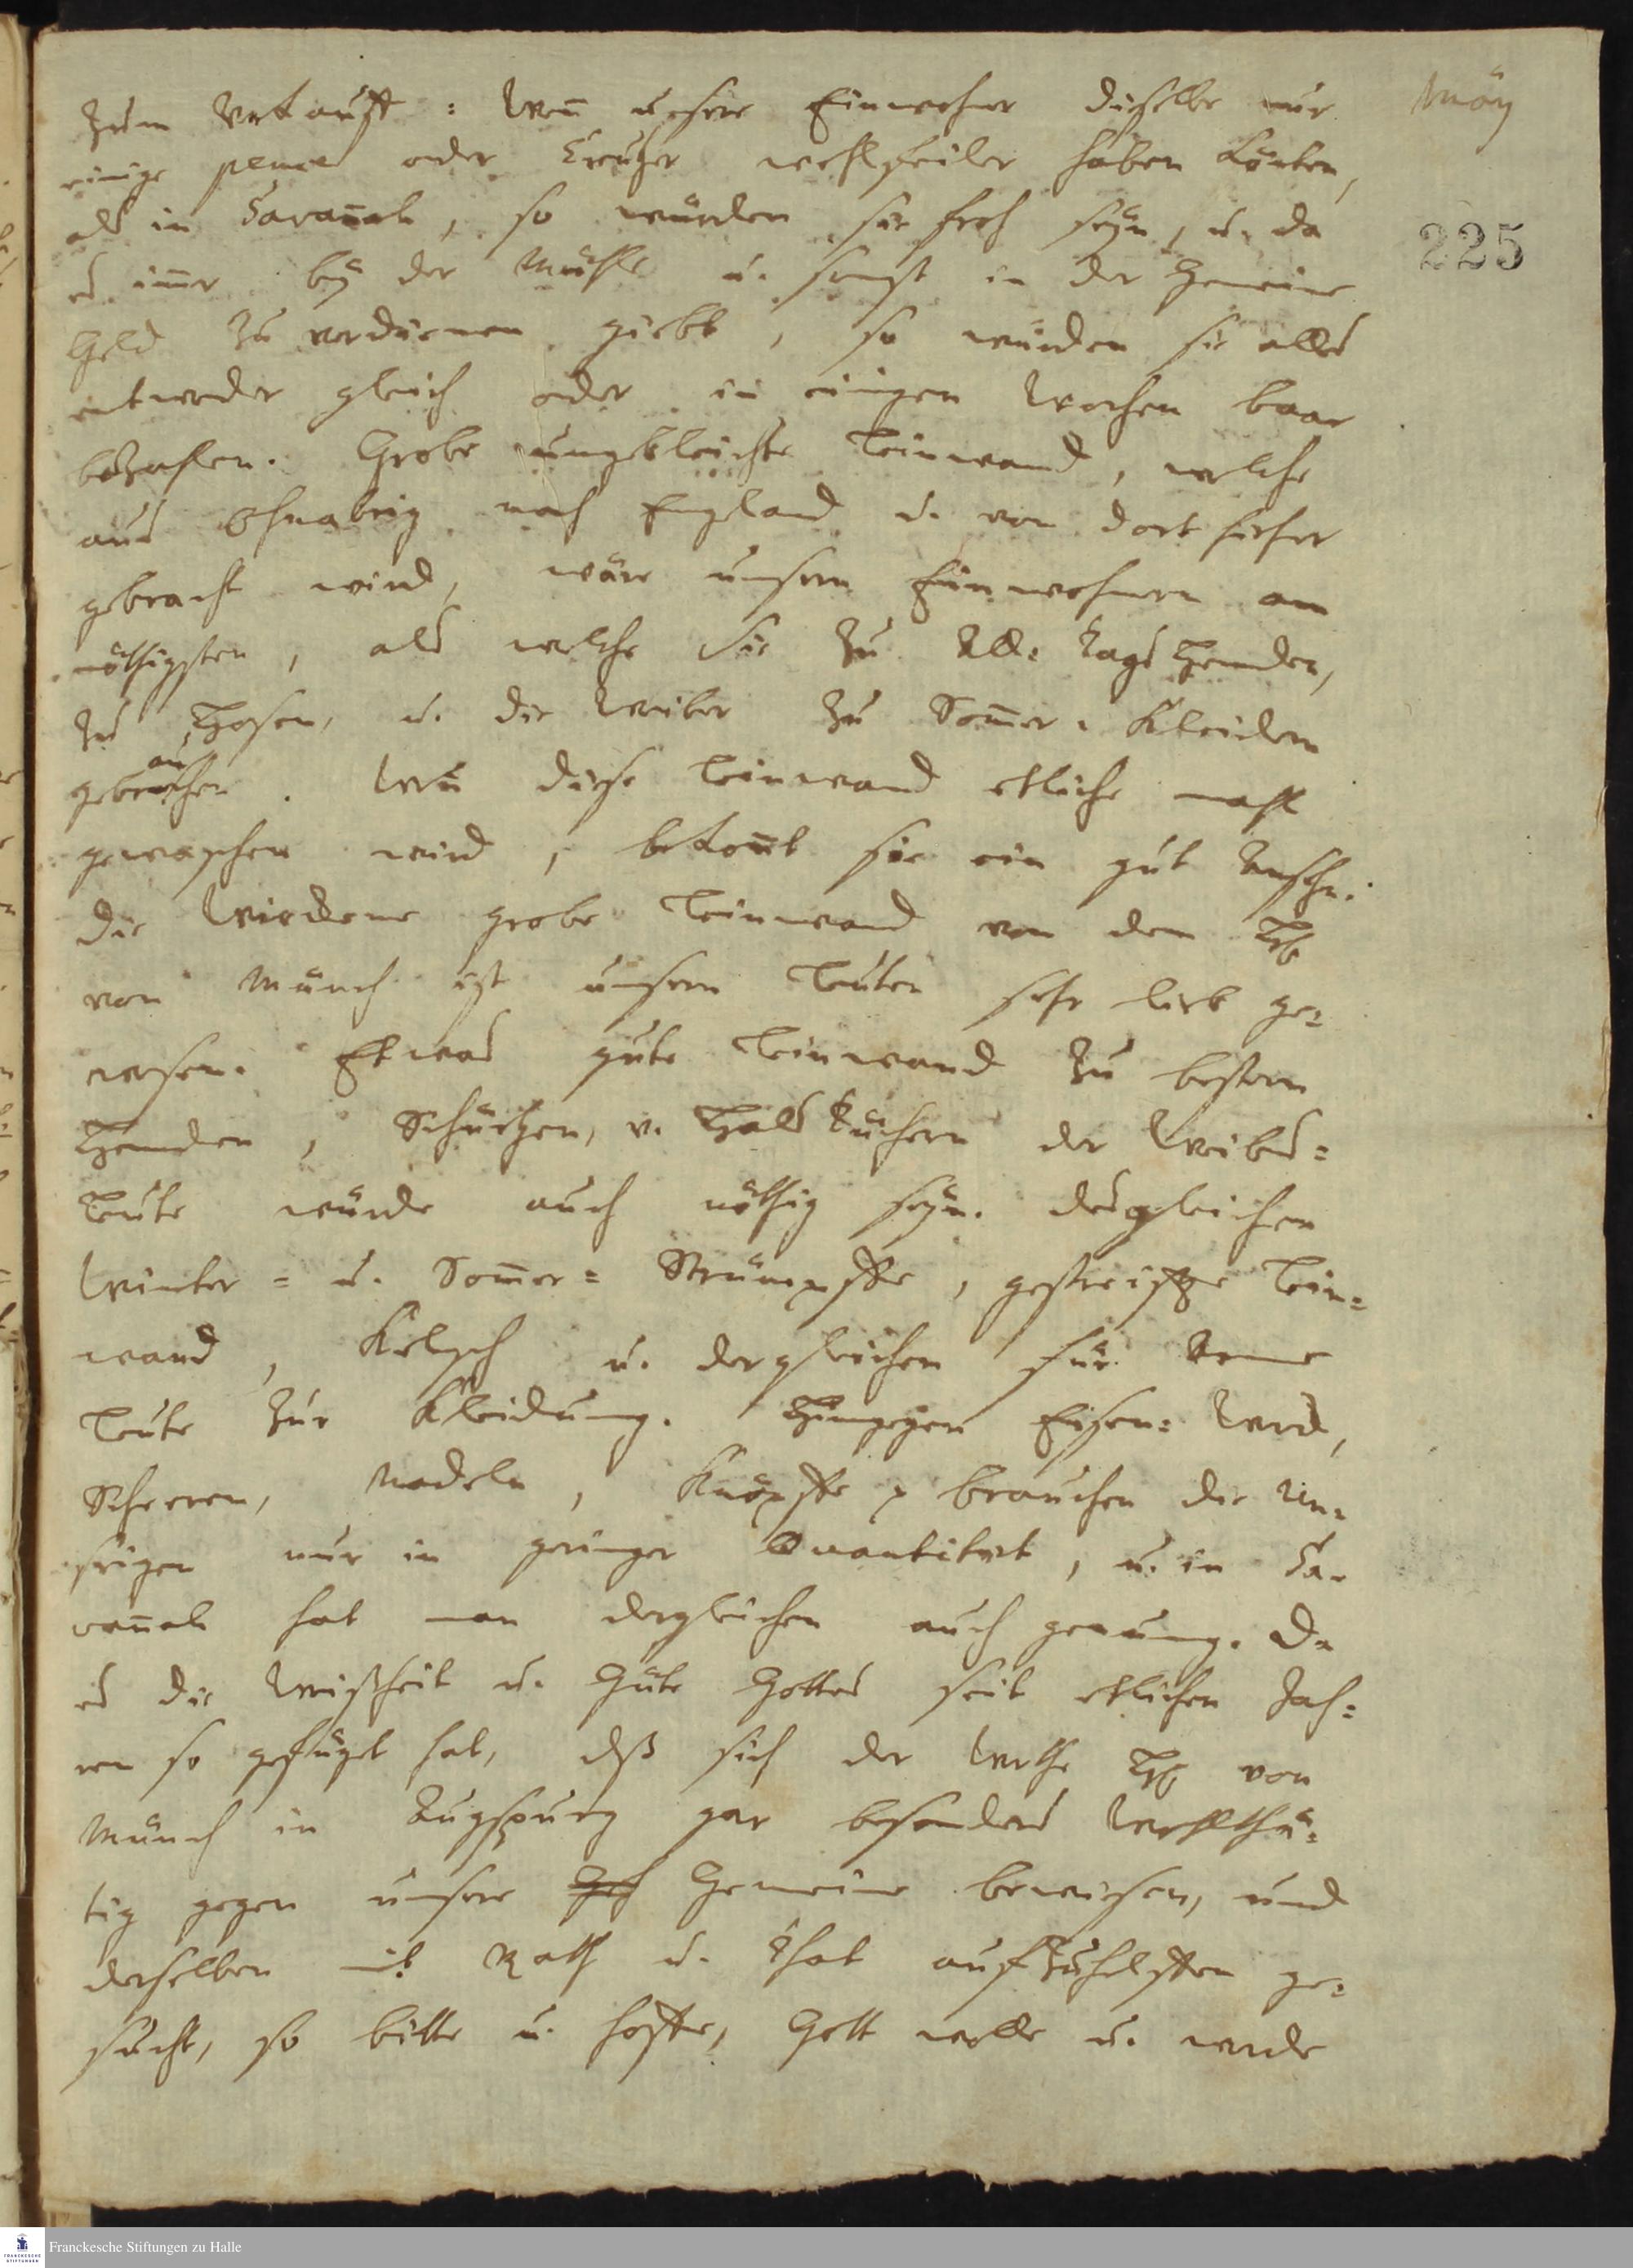 May
225
zum Verkauff: Weñ unsere Einwohner dieselbe nur
einige pence oder Creutzer wohlfeiler haben könten,
als in Savañah, so würden sie froh seyn, u. da
es im̃er bey der Mühle u. sonst in der Gemeine
Geld zu verdienen giebt, so würden sie alles
entweder gleich oder in einigen Wochen baar
bezahlen. Grobe ungebleichte Leinwand, welche
aus Oßnabrig nach England u. von dort hieher
gebracht wird, wäre unsern Einwohnern am
nöthigsten, als welche sie zu All- Tags Hemden,
zu Hosen, u. die Weiber zu Som̃er-Kleidern
gebrauchen. Weñ diese Leinwand etliche mahl
gewaschen wird, bekom̃t sie ein gut Ansehn.
Die Wirckene grobe Leinwand von dem H.
von Münch ist unsern Leuten sehr lieb ge-
wesen. Etwas gute Leinwand zu bessern
Hemden, Schürtzen, u. Halstüchern der Weibs-
Leute würde auch nöthig seyn. desgleichen
Winter- u. Som̃er-Strümpffe, gestreiffte Lein-
wand, Kelsch u. dergleichen für Arme
Leute zur Kleidung. Hingegen Eisen-Werck,
Scheeren, Nadeln, Knöpffe p brauchen die Un-
srigen nur in geringer Quantitæt, u. in Sa-
vañah hat man dergleichen auch genung. Da
es die Weißheit u. Güte Gottes seit etlichen Jah-
ren so gefüget hat, dß sich der Werthe H. von
Münch in Augspurg gar besonders Wohlthä-
tig gegen unsere Gemeine bewiesen, und
derselben mit Rath u. That aufzuhelffen ge-
sucht, so bitte u. hoffe, Gott wolle u. werde
Franckesche Stiftungen zu Halle